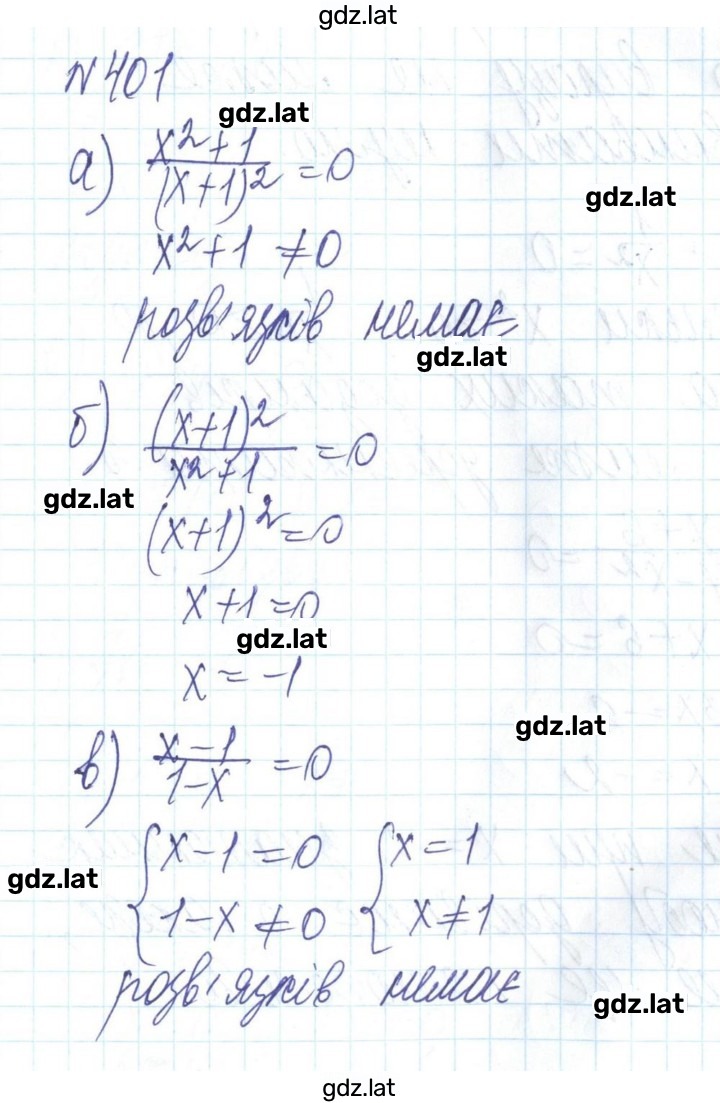 gdz.lat
№ 401
gdz.lat
а) (x²+1)/(x+1)² = 0
gdz.lat
x²+1 ≠ 0
розв'язків немає
gdz.lat
б) (x+1)²/(x²+1) = 0
gdz.lat
(x+1)² = 0
x+1=0
gdz.lat
x = -1
gdz.lat
в) (x-1)/(1-x) = 0
{x-1=0 {x=1
gdz.lat
{1-x≠0 {x≠1
розв'язків немає
gdz.lat
gdz.lat